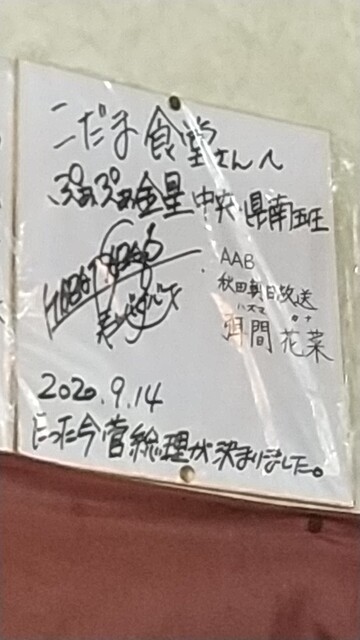 こだま食堂さんへ
ぷぁぷぁ金星 中央・県南班
AAB
秋田朝日放送
ハズマ カナ
間 花菜
2020.9.14
たった今菅総理が決まりました。